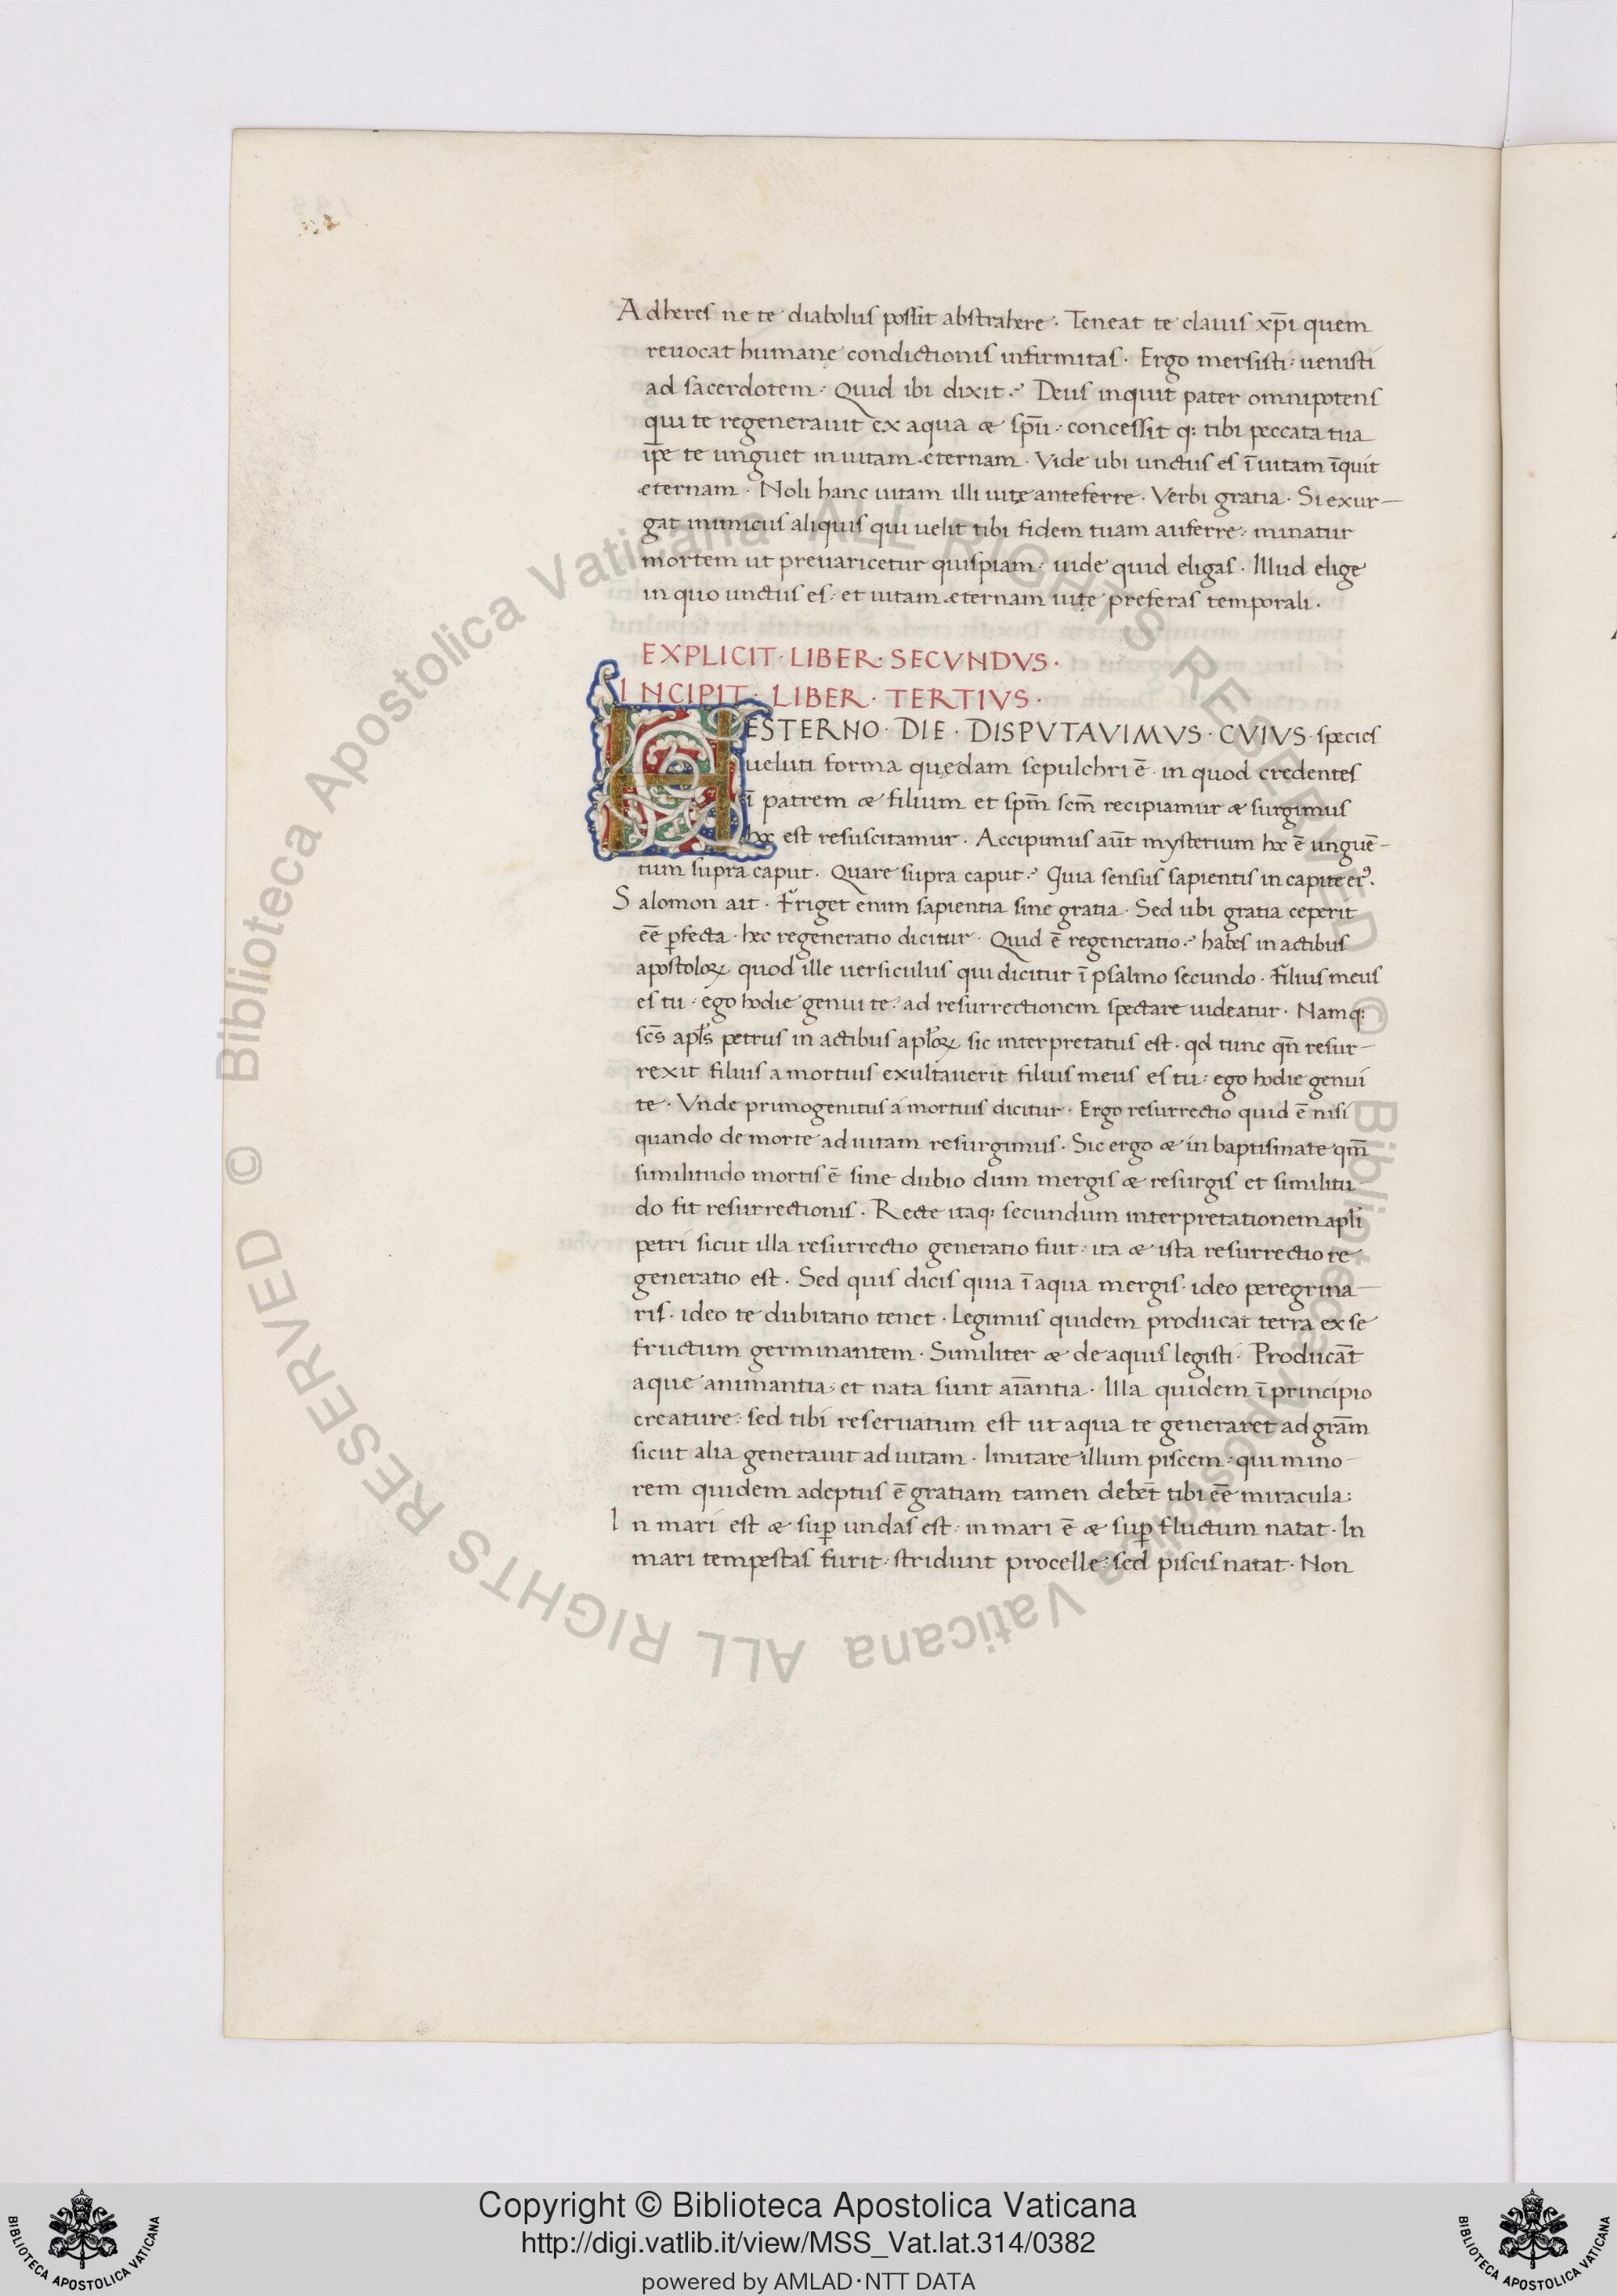 Adheres ne te diabolus possit abstrahere. Teneat te clauis xp̄i quem
reuocat humanę condictionis infirmitas. Ergo mersisti: uenisti
ad sacerdotem. Quid ibi dixit? Deus inquit pater omnipotens
qui te regenerauit ex aqua æ sp̄u: concessit q: tibi peccata tua
ip̄e te unguet in uitam æternam. Vide ubi unctus es ī uitam īquit
æternam. Noli hanc uitam illi uitę anteferre. Verbi gratia. Si exur-
gat inimicus aliquis qui uelit tibi fidem tuam auferre: minatur
mortem ut preuaricetur quispiam: uide quid eligas. Illud elige
in quo unctus es: et uitam æternam uitę preferas temporali.
EXPLICIT·LIBER·SECVNDVS·
INCIPIT·LIBER·TERTIVS·
HESTERNO·DIE·DISPVTAVIMVS·CVIVS·species
ueluti forma quędam sepulchri ē in quod credentes
ī patrem æ filium et sp̄m sc̄m recipiamur æ surgimus
hoc est resuscitamur. Accipimus aūt mysterium hoc ē unguē-
tum supra caput. Quare supra caput? Quia sensus sapientis in capite ei9.
Salomon ait. Friget enim sapientia sine gratia. Sed ubi gratia ceperit
eē ꝑfecta. hęc regeneratio dicitur. Quid ē regeneratio? habes in actibus
apostoloꝝ quod ille uersiculus qui dicitur ī psalmo secundo. Filius meus
es tu: ego hodie genui te: ad resurrectionem spectare uideatur. Namq:
sc̄s apl̄s petrus in actibus apl̄oꝝ sic interpretatus est. qd tunc qn̄ resur-
rexit filius a mortuis exultauerit filius meus es tu: ego hodie genui
te. Vnde primogenitus a mortuis dicitur. Ergo resurrectio quid ē nisi
quando de morte ad uitam resurgimus. Sic ergo æ in baptismate qm̄
similitudo mortis ē sine dubio dum mergis æ resurgis et similitu-
do fit resurrectionis. Recte itaq: secundum interpretationem apl̄i
petri sicut illa resurrectio generatio fuit: ita æ ista resurrectio re-
generatio est. Sed quis dicis quia ī aqua mergis. ideo peregrina-
ris. ideo te dubitatio tenet. Legimus quidem producat terra ex se
fructum germinantem. Similiter æ de aquis legisti. Producāt
aque animantia: et nata sunt aīantia. Illa quidem ī principio
creature: sed tibi reseruatum est ut aqua te generaret ad grām
sicut alia generauit ad uitam. Imitare illum piscem: qui mino-
rem quidem adeptus ē gratiam tamen debēt tibi eē miracula:
In mari est æ suꝑ undas est: in mari ē æ suꝑ fluctum natat. In
mari tempestas furit: stridunt procelle: sed piscis natat. Non
Copyright © Biblioteca Apostolica Vaticana
http://digi.vatlib.it/view/MSS_Vat.lat.314/0382
powered by AMLAD·NTT DATA
© Biblioteca Apostolica Vaticana ALL RIGHTS RESERVED
© Biblioteca Apostolica Vaticana ALL RIGHTS RESERVED
BIBLIOTECA APOSTOLICA VATICANA
BIBLIOTECA APOSTOLICA VATICANA